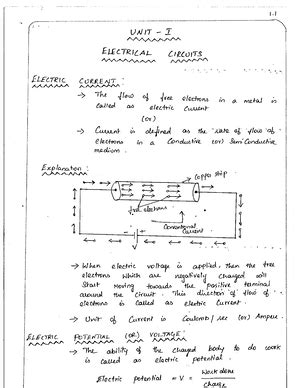 1-1
UNIT - I
ELECTRICAL CIRCUITS
ELECTRIC CURRENT :
→ The flow of free electrons in a metal is
called as electric current
(or)
→ Current is defined as the rate of flow of
electrons in a Conductive (or) Semi Conductive
medium.
Explanation :
Copper strip
free electrons
Conventional
Current
→ When electric voltage is applied, then the free
electrons which are negatively charged will
Start moving towards the positive terminal
around the circuit. This direction of flow of
electrons is called as electric Current.
→ Unit of Current is Coulomb/sec (or) Ampere.
ELECTRIC POTENTIAL (OR) VOLTAGE :
→ The ability of the charged body to do work
is called as electric potential.
Electric potential = V = Work done
Charge